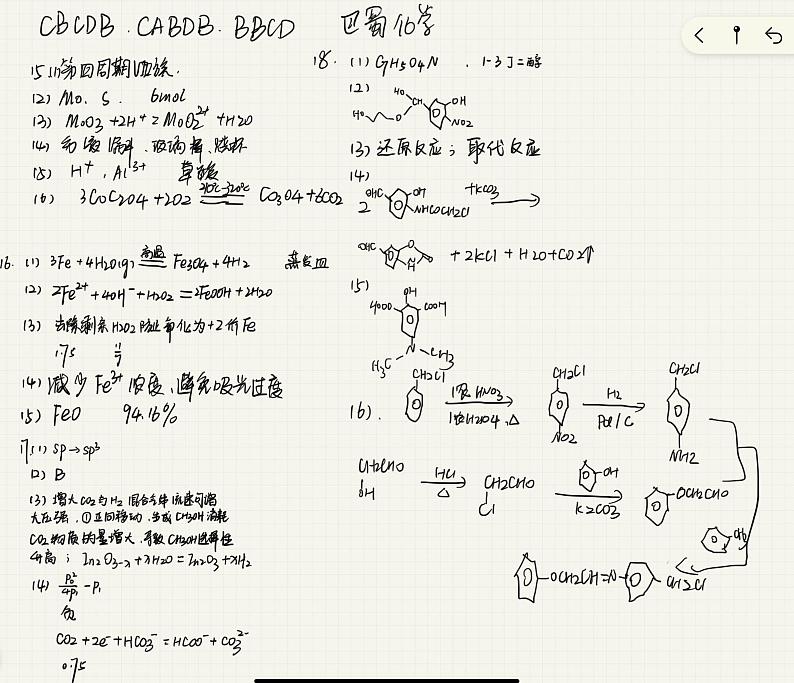 CBCDB. CABDB. BBCD 巴蜀化学
15.(1)第四周期Ⅷ族.
(2) Mo、S. 6mol
(3) MoO3+2H⁺=MoO2²⁺+H2O
(4) 漏斗、玻璃棒、烧杯
(5) H⁺、Al³⁺ 草酸
(6) 3CoC2O4+2O2 Co3O4+6CO2
16. (1) 3Fe+4H2O(g) 高温 Fe3O4+4H2 蒸发皿
(2) 2Fe²⁺+4OH⁻+H2O2=2FeOOH+2H2O
(3) 去除剩余H2O2防止氧化为+2价Fe
1.75
(4) 减少Fe³⁺浓度,避免吸光过度
(5) FeO 94.16%
17.(1) sp→sp³
(2) B
(3) 增大CO2与H2混合气体流速可增
大压强,①正向移动,生成CH3OH消耗
CO2物质的量增大,导致CH3OH选择性
升高; In2O3-x+xH2O=In2O3+xH2
(4) P0²/4P1 -P1
负
CO2+2e⁻+HCO3⁻=HCOO⁻+CO3²⁻
0.75
18. (1) C7H5O4N . 1-3丁二醇
(2)
HO
CH
OH
HO
O
NO2
(3) 还原反应; 取代反应
(4)
2
OHC
OH
NHCOCH2Cl
+K2CO3
OHC
O
H
+2KCl+H2O+CO2↑
(5)
OH
HOOC
COOH
N
H3C
CH3
(6).
CH2Cl
浓HNO3
浓H2SO4,△
CH2Cl
NO2
H2
Pd/C
CH2Cl
NH2
CH2CHO
OH
HCl
△
CH2CHO
Cl
OH
K2CO3
OCH2CHO
OCH2CH=N
CH2Cl